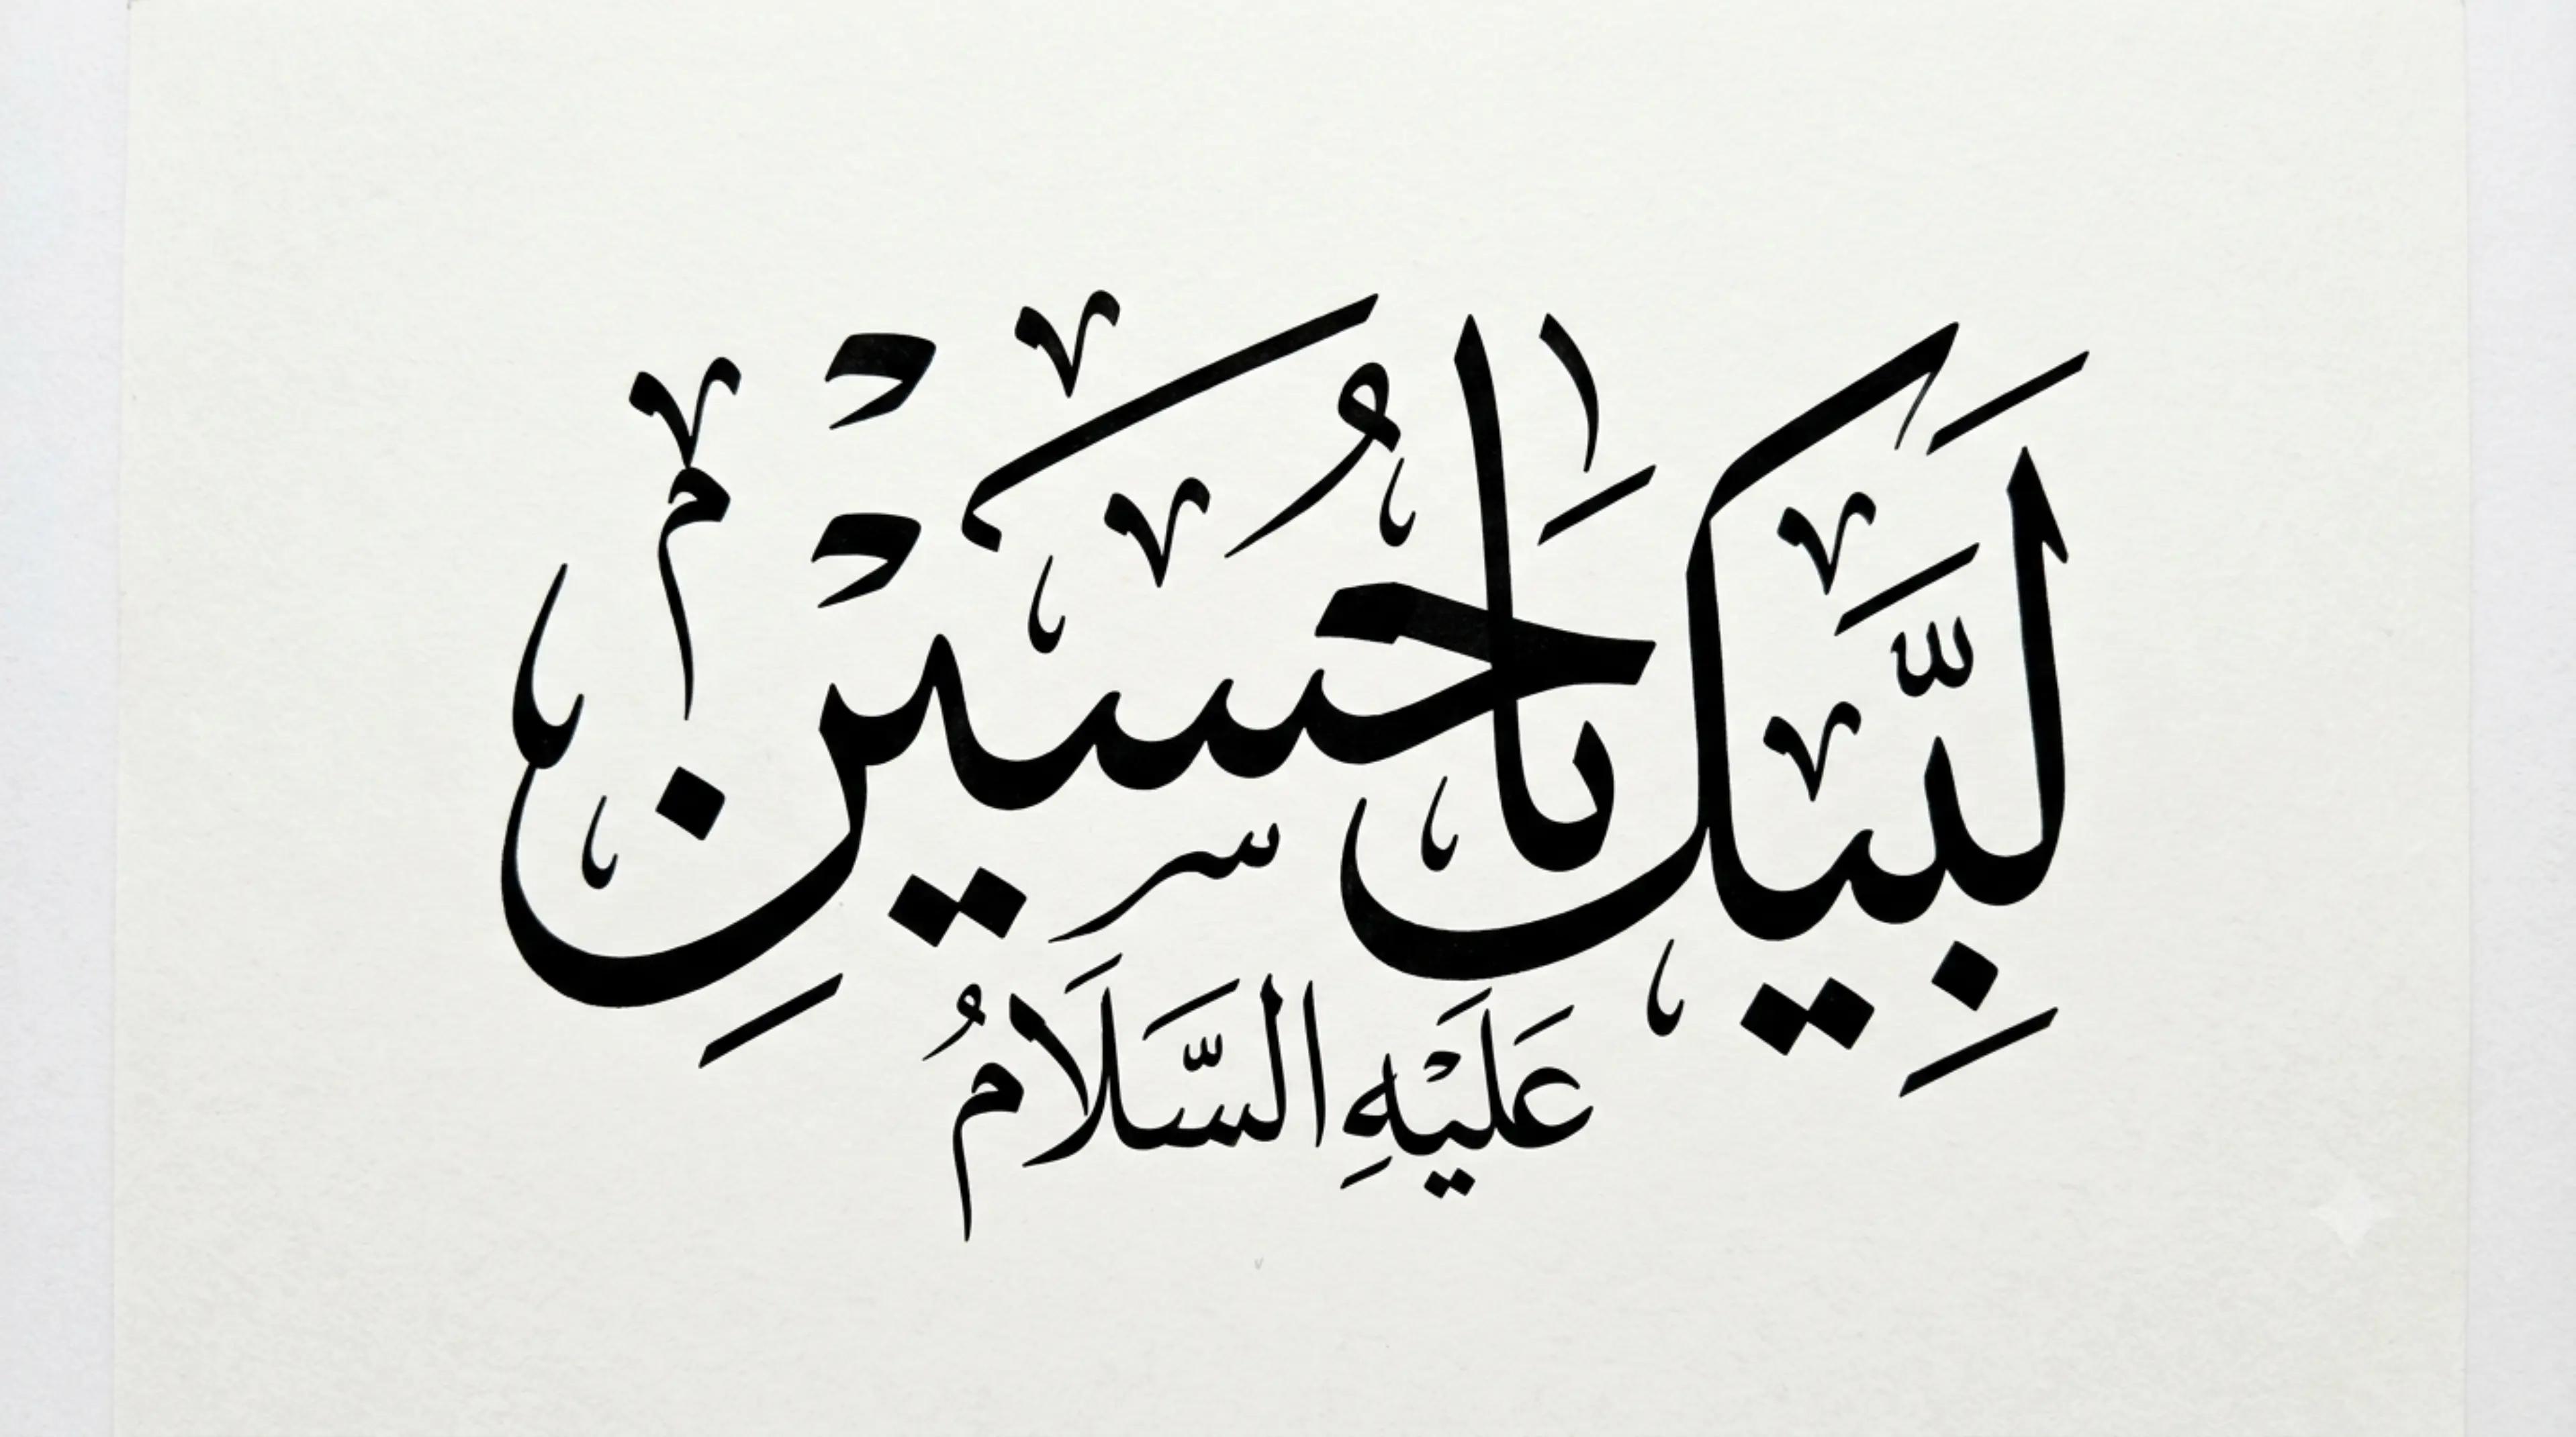 لَبَّيِكَ يَا حُسَيْنِ
عَلَيْهِ السَّلَامُ